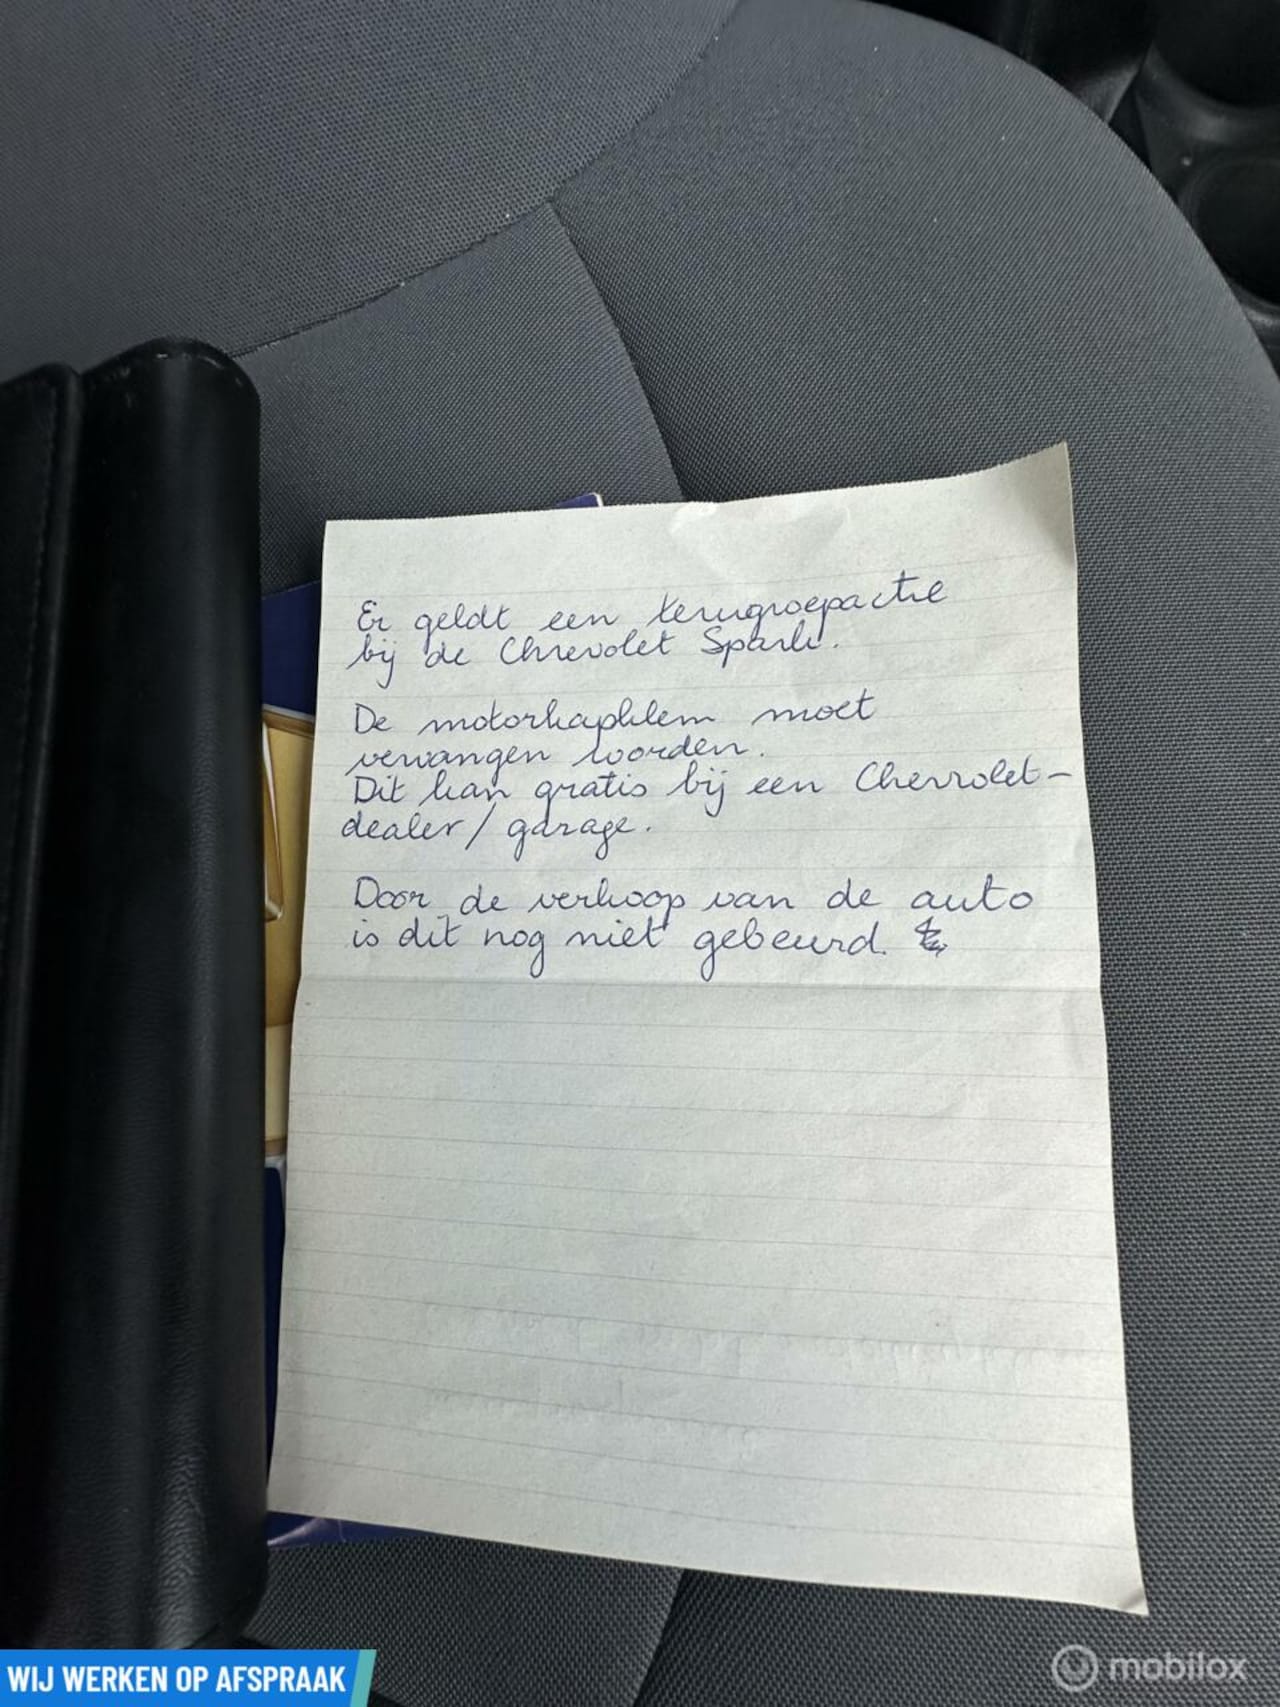 Er geldt een terugroepactie
bij de Chrevolet Spark.
De motorkapklem moet
vervangen worden.
Dit kan gratis bij een Chevrolet-
dealer/garage.
Door de verkoop van de auto
is dit nog niet gebeurd.
WIJ WERKEN OP AFSPRAAK
mobilox